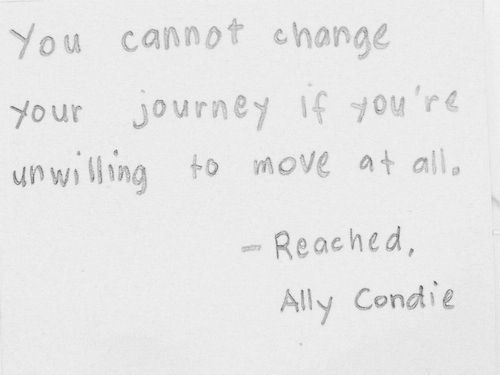 You cannot change
your journey if you're
unwilling to move at all.
- Reached,
Ally Condie